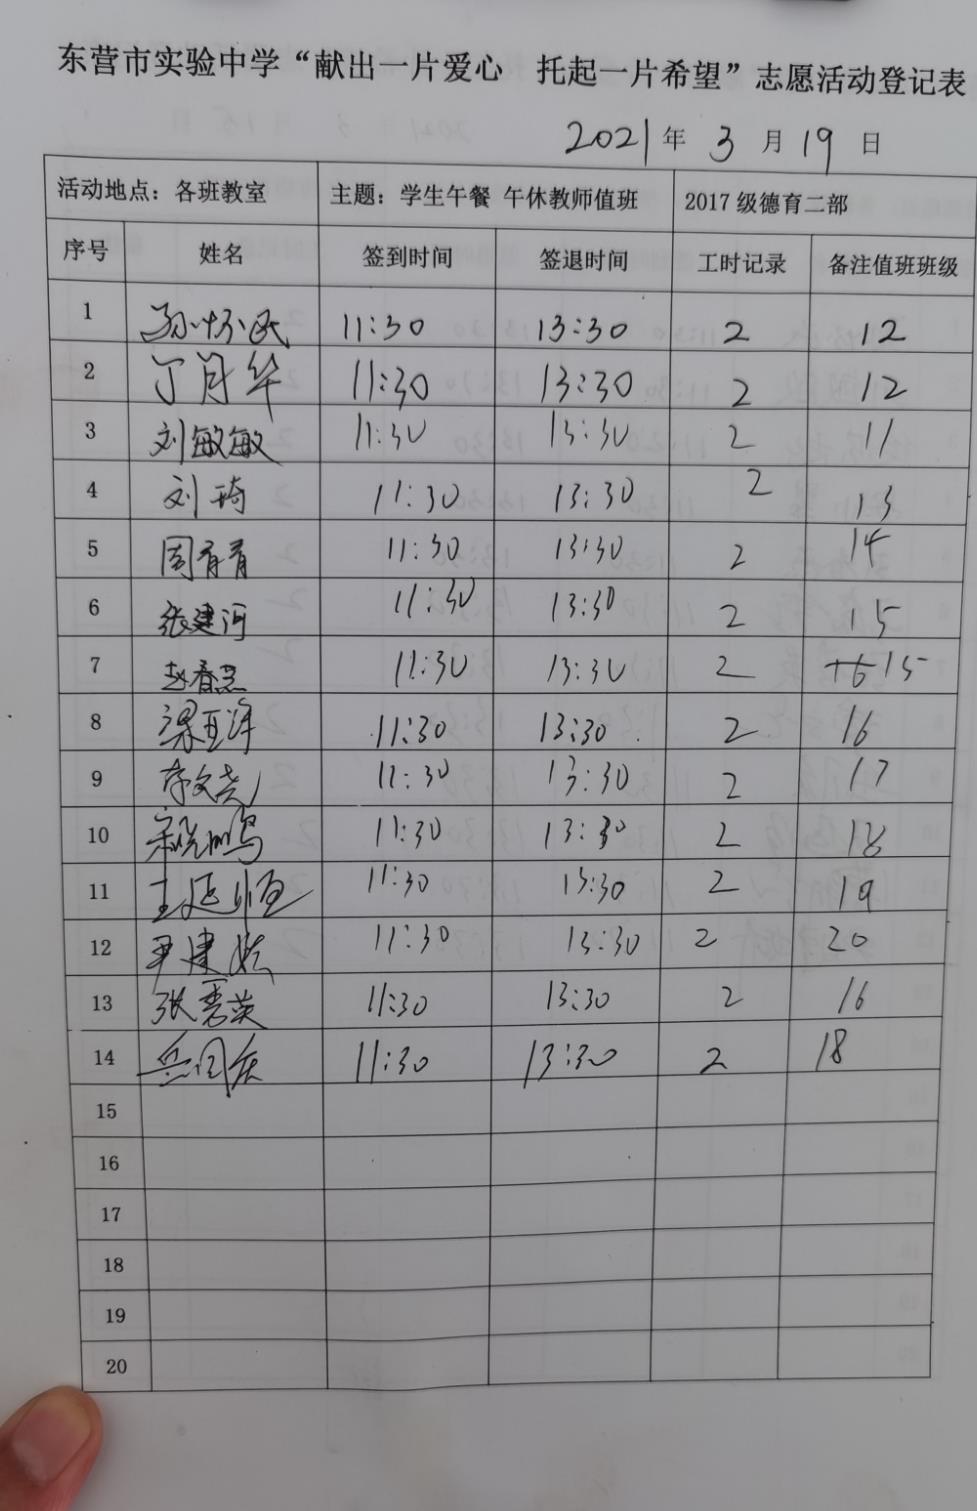 东营市实验中学“献出一片爱心 托起一片希望”志愿活动登记表
2021年 3 月 19 日
活动地点：各班教室 主题：学生午餐 午休教师值班 2017 级德育二部
序号 姓名 签到时间 签退时间 工时记录 备注值班班级
1 11:30 13:30 2 12
2 丁月华 11:30 13:30 2 12
3 刘敏敏 11:30 13:30 2 11
4 刘琦 11:30 13:30 2 13
5 周青青 11:30 13:30 2 14
6 张建河 11:30 13:30 2 15
7 11:30 13:30 2 15
8 梁亚萍 11:30 13:30 2 16
9 李文尧 11:30 13:30 2 17
10 11:30 13:30 2 18
11 王延恒 11:30 13:30 2 19
12 尹建 11:30 13:30 2 20
13 张秀英 11:30 13:30 2 16
14 岳国庆 11:30 13:30 2 18
15
16
17
18
19
20